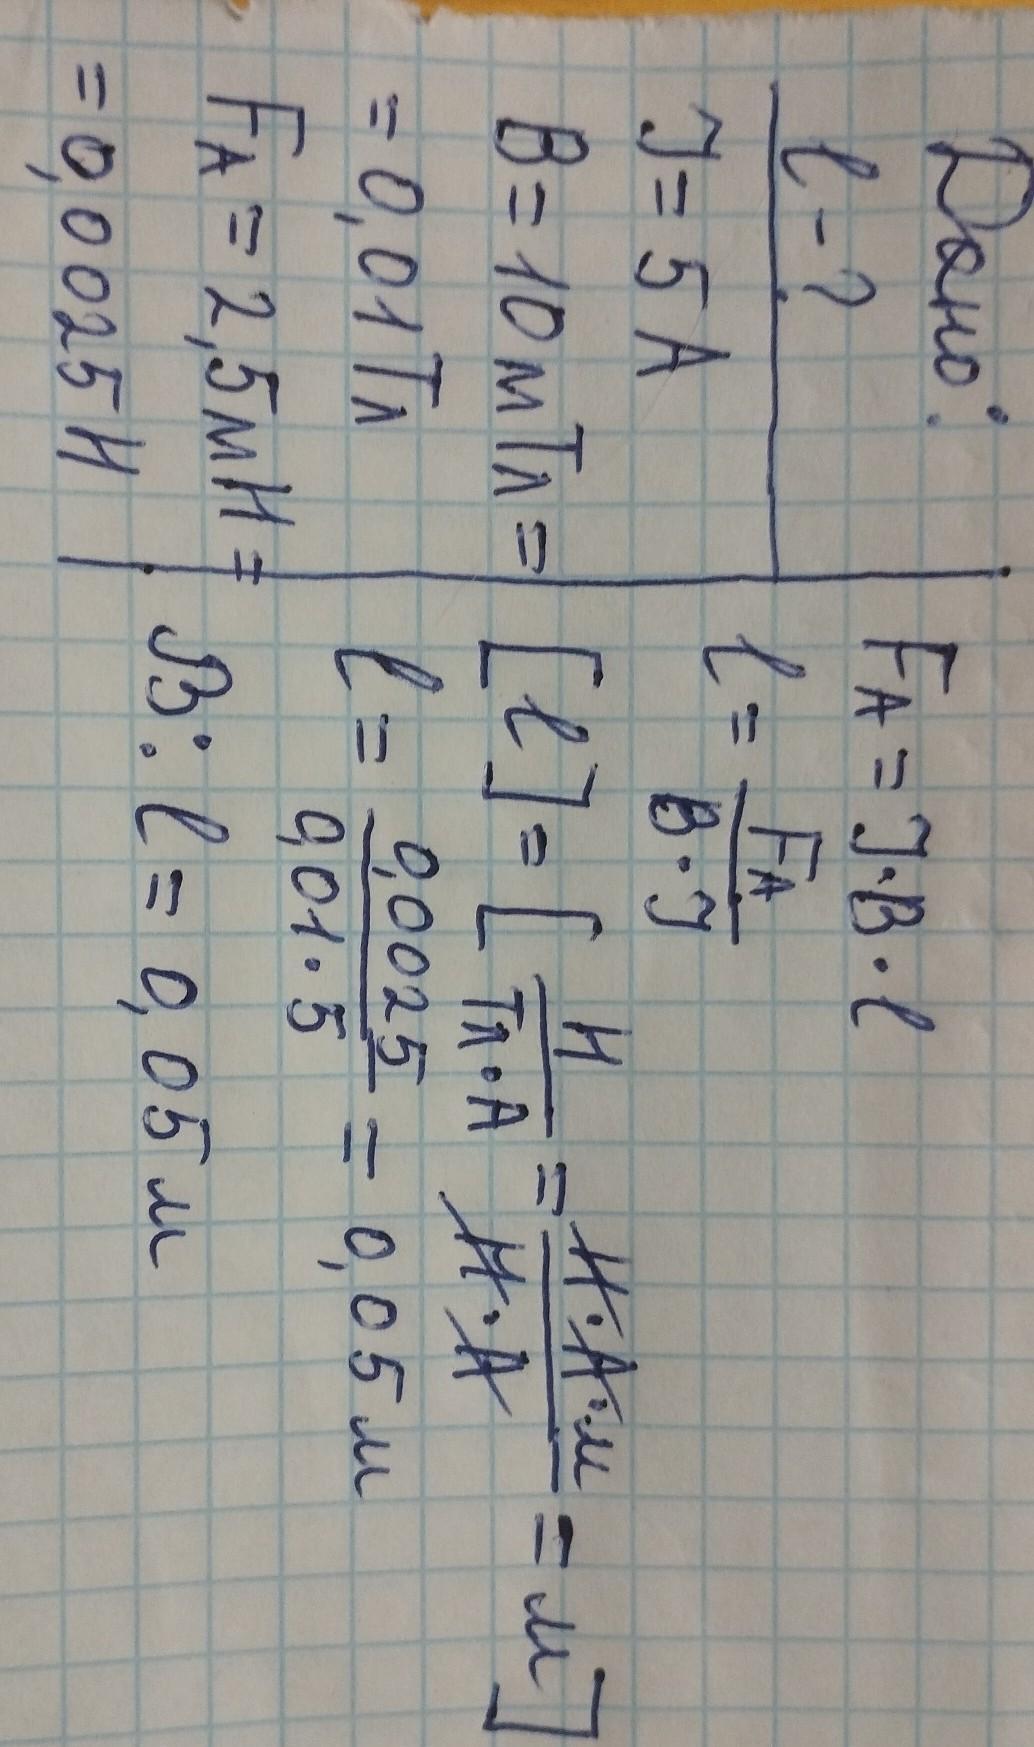 Дано:
l - ?
J = 5 A
B = 10 мТл =
= 0,01 Тл
F_A = 2,5 мН =
= 0,0025 Н
F_A = J·B·l
l = F_A / B·J
[l] = [Н / Тл·А = Н·А·м / Н·А = м]
l = 0,0025 / 0,01·5 = 0,05 м
В: l = 0,05 м